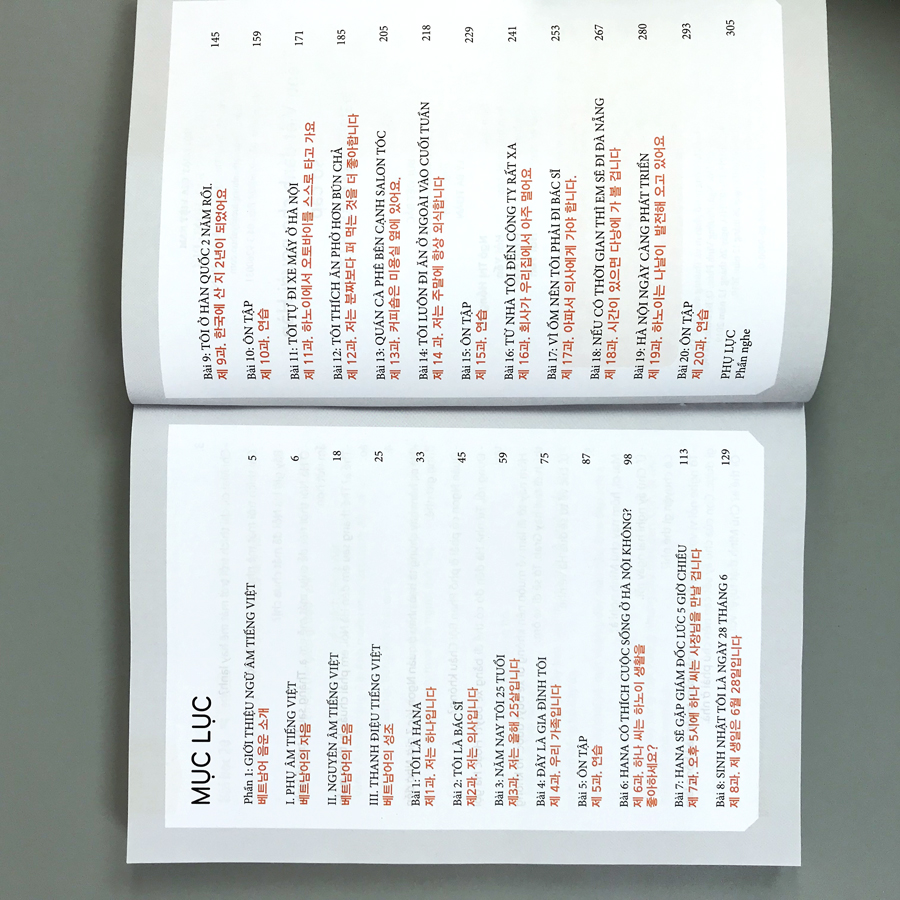 MỤC LỤC
Phần 1: GIỚI THIỆU NGỮ ÂM TIẾNG VIỆT 5
베트남어 음운 소개
I. PHỤ ÂM TIẾNG VIỆT 6
베트남어의 자음
II. NGUYÊN ÂM TIẾNG VIỆT 18
베트남어의 모음
III. THANH ĐIỆU TIẾNG VIỆT 25
베트남어의 성조
Bài 1: TÔI LÀ HANA 33
제1과. 저는 하나입니다
Bài 2: TÔI LÀ BÁC SĨ 45
제2과. 저는 의사입니다
Bài 3: NĂM NAY TÔI 25 TUỔI 59
제3과. 저는 올해 25살입니다
Bài 4: ĐÂY LÀ GIA ĐÌNH TÔI 75
제 4과. 우리 가족입니다
Bài 5: ÔN TẬP 87
제 5과. 연습
Bài 6: HANA CÓ THÍCH CUỘC SỐNG Ở HÀ NỘI KHÔNG? 98
제 6과. 하나 씨는 하노이 생활을
좋아하세요?
Bài 7: HANA SẼ GẶP GIÁM ĐỐC LÚC 5 GIỜ CHIỀU 113
제 7과. 오후 5시에 하나 씨는 사장님을 만날 겁니다
Bài 8: SINH NHẬT TÔI LÀ NGÀY 28 THÁNG 6 129
제 8과. 제 생일은 6월 28일입니다
Bài 9: TÔI Ở HÀN QUỐC 2 NĂM RỒI. 145
제 9과. 한국에 산 지 2년이 되었어요
Bài 10: ÔN TẬP 159
제 10과. 연습
Bài 11: TÔI TỰ ĐI XE MÁY Ở HÀ NỘI 171
제 11과. 하노이에서 오토바이를 스스로 타고 가요
Bài 12: TÔI THÍCH ĂN PHỞ HƠN BÚN CHẢ 185
제 12과. 저는 분짜보다 퍼 먹는 것을 더 좋아합니다
Bài 13: QUÁN CÀ PHÊ BÊN CẠNH SALON TÓC 205
제 13과. 커피숍은 미용실 옆에 있어요.
Bài 14: TÔI LUÔN ĐI ĂN Ở NGOÀI VÀO CUỐI TUẦN 218
제 14 과. 저는 주말에 항상 외식합니다
Bài 15: ÔN TẬP 229
제 15과. 연습
Bài 16: TỪ NHÀ TÔI ĐẾN CÔNG TY RẤT XA 241
제 16과. 회사가 우리집에서 아주 멀어요
Bài 17: VÌ ỐM NÊN TÔI PHẢI ĐI BÁC SĨ 253
제 17과. 아파서 의사에게 가야 합니다.
Bài 18: NẾU CÓ THỜI GIAN THÌ EM SẼ ĐI ĐÀ NẴNG 267
제 18과. 시간이 있으면 다낭에 가 볼 겁니다
Bài 19: HÀ NỘI NGÀY CÀNG PHÁT TRIỂN 280
제 19과. 하노이는 나날이 발전해 오고 있어요
Bài 20: ÔN TẬP 293
제 20과. 연습
PHỤ LỤC 305
Phần nghe